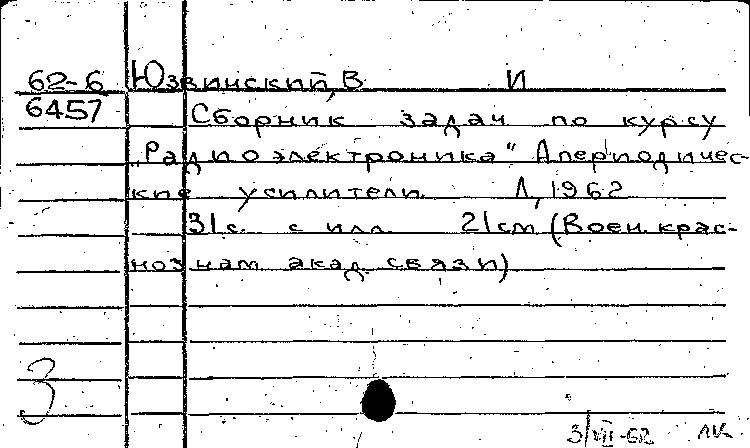 62-6 Юзвинский, В И
6457 Сборник задач по курсу
„Радиоэлектроника“ Апериодичес-
кие усилители. Л, 1962
31с. с илл. 21см (Воен. крас-
нознам. акад. связи)
3
3/VII-62 ЛК